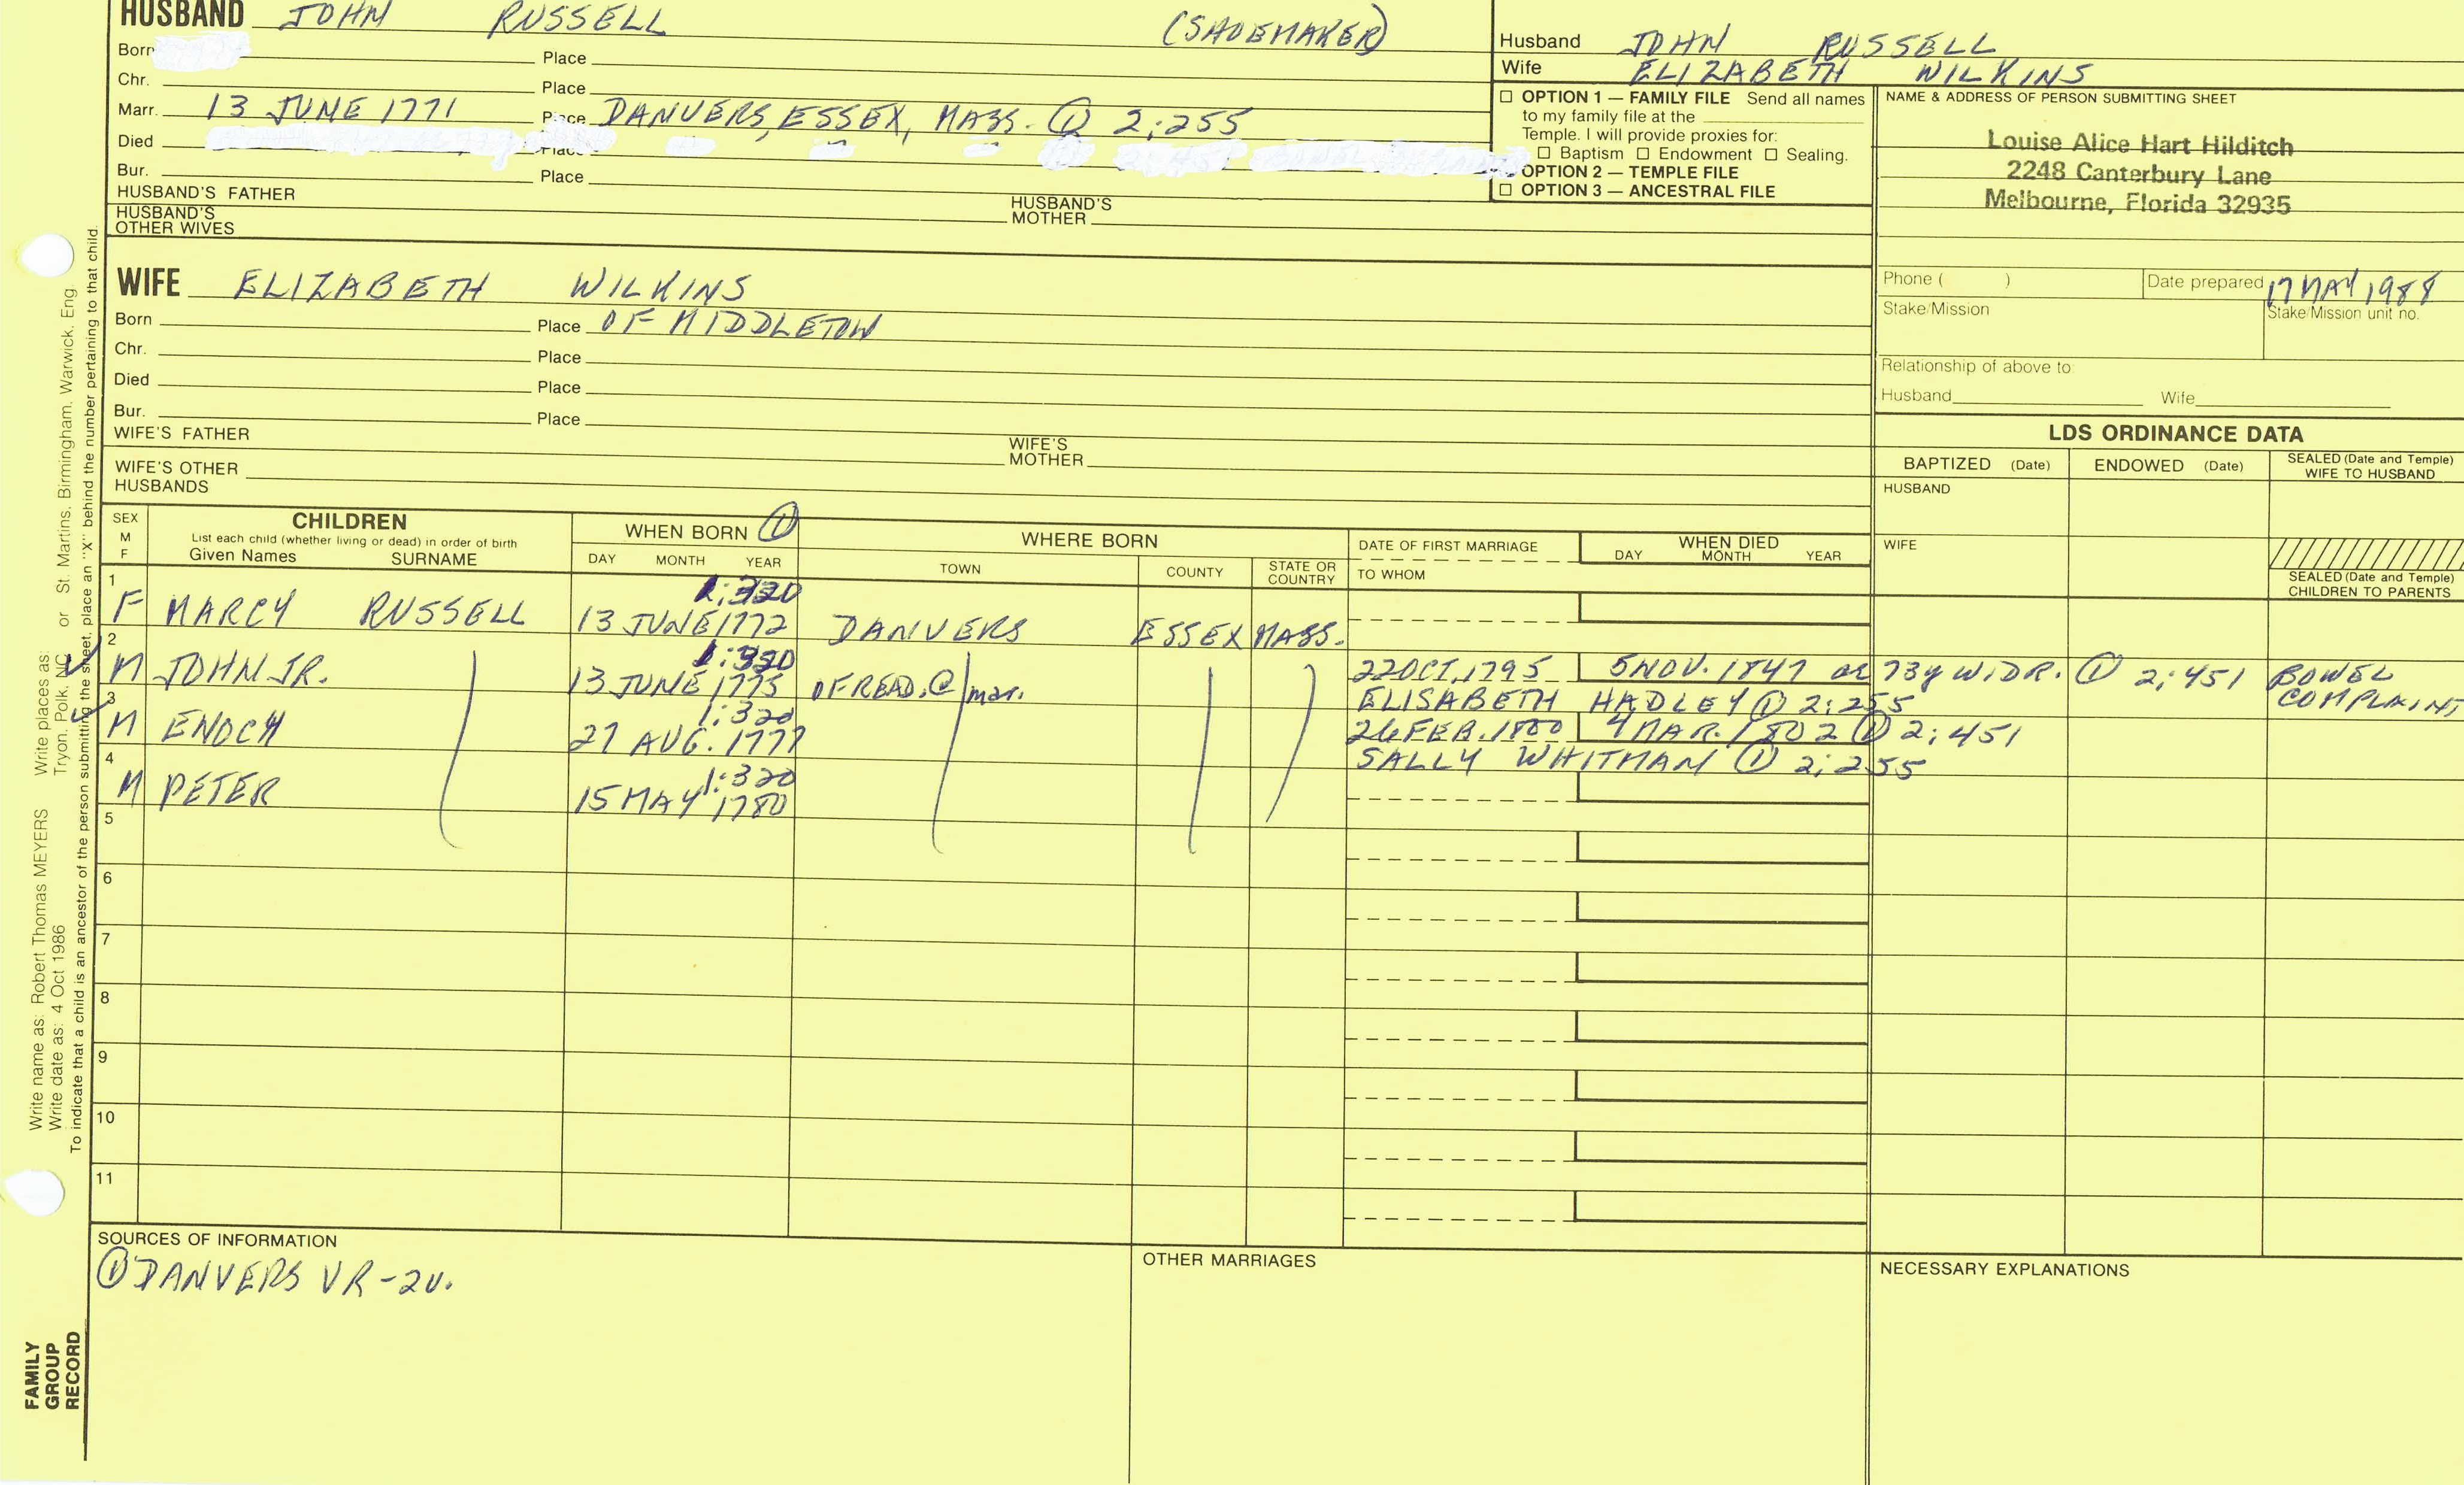 HUSBAND JOHN RUSSELL (SHOEMAKER)
Born Place
Chr. Place
Marr. 13 JUNE 1771 Place DANVERS, ESSEX, MASS. ① 2:255
Died Place
Bur. Place
HUSBAND'S FATHER HUSBAND'S MOTHER
HUSBAND'S OTHER WIVES
Husband JOHN RUSSELL
Wife ELIZABETH WILKINS
☐ OPTION 1 — FAMILY FILE Send all names
to my family file at the
Temple. I will provide proxies for:
☐ Baptism ☐ Endowment ☐ Sealing.
OPTION 2 — TEMPLE FILE
☐ OPTION 3 — ANCESTRAL FILE
NAME & ADDRESS OF PERSON SUBMITTING SHEET
Louise Alice Hart Hilditch
2248 Canterbury Lane
Melbourne, Florida 32935
Phone ( ) Date prepared 17 MAY 1988
Stake/Mission Stake/Mission unit no.
Relationship of above to
Husband Wife
WIFE ELIZABETH WILKINS
Born Place OF MIDDLETON
Chr. Place
Died Place
Bur. Place
WIFE'S FATHER WIFE'S MOTHER
WIFE'S OTHER HUSBANDS
LDS ORDINANCE DATA
BAPTIZED (Date) ENDOWED (Date) SEALED (Date and Temple) WIFE TO HUSBAND
HUSBAND
WIFE
SEALED (Date and Temple) CHILDREN TO PARENTS
SEX M F
CHILDREN
List each child (whether living or dead) in order of birth
Given Names SURNAME
WHEN BORN ①
DAY MONTH YEAR
WHERE BORN
TOWN COUNTY STATE OR COUNTRY
DATE OF FIRST MARRIAGE
TO WHOM
WHEN DIED
DAY MONTH YEAR
1 1:320
F MARCY RUSSELL 13 JUNE 1772 DANVERS ESSEX MASS.
2 1:320
M JOHN JR. 13 JUNE 1775 OF READ. @ mar. 22 OCT. 1795 5 NOV. 1847 ae 73y WIDR. ① 2:451 BOWEL COMPLAINT
ELISABETH HADLEY ① 2:255
3 1:320
M ENOCH 27 AUG. 1777 26 FEB. 1800 4 MAR. 1802 ① 2:451
SALLY WHITMAN ① 2:255
4 1:320
M PETER 15 MAY 1780
5
6
7
8
9
10
11
SOURCES OF INFORMATION
① DANVERS VR-2v.
OTHER MARRIAGES
NECESSARY EXPLANATIONS
Write name as: Robert Thomas MEYERS Write places as: Tryon, Polk, NC or St. Martins, Birmingham, Warwick, Eng.
Write date as: 4 Oct 1986
To indicate that a child is an ancestor of the person submitting the sheet, place an "X" behind the number pertaining to that child.
FAMILY
GROUP
RECORD